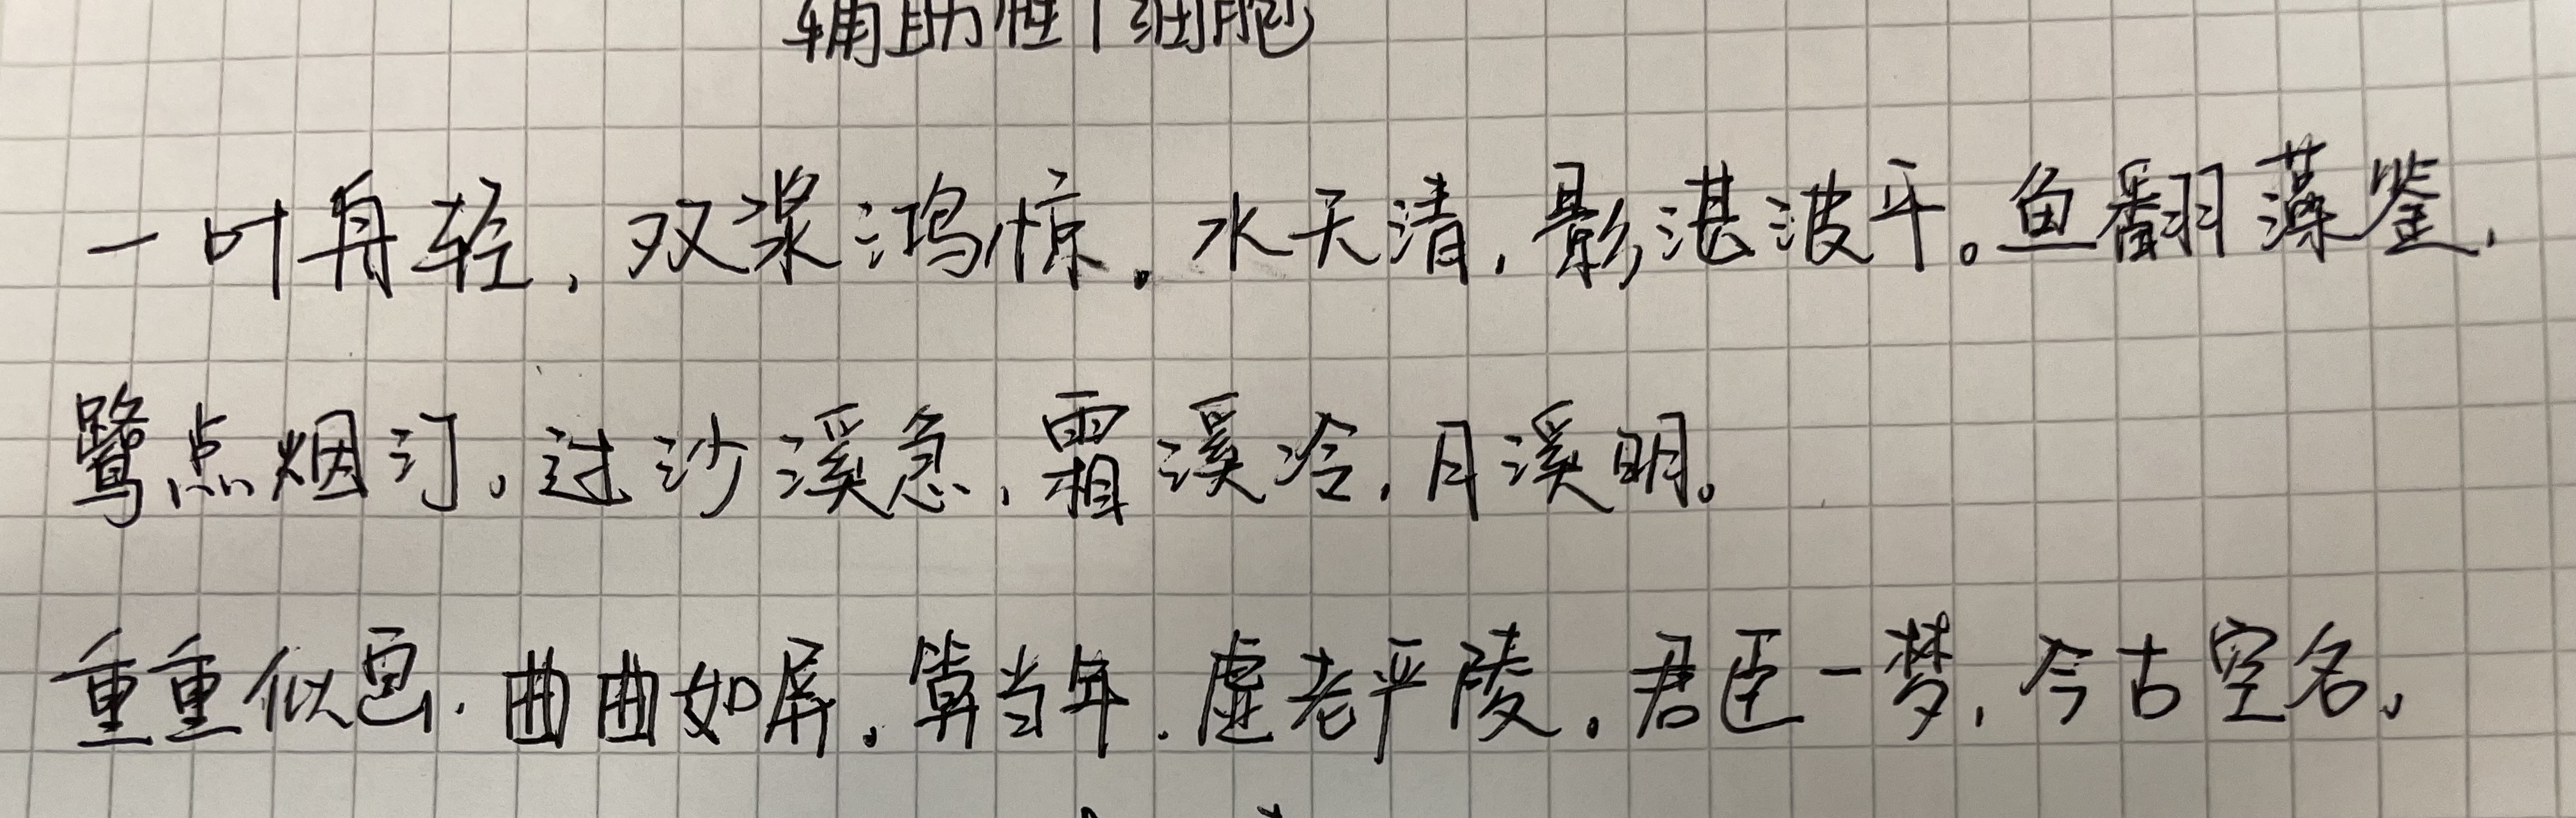 辅助性T细胞
一叶舟轻，双桨鸿惊。水天清，影湛波平。鱼翻藻鉴，
鹭点烟汀。过沙溪急，霜溪冷，月溪明。
重重似画，曲曲如屏。算当年，虚老严陵。君臣一梦，今古空名。